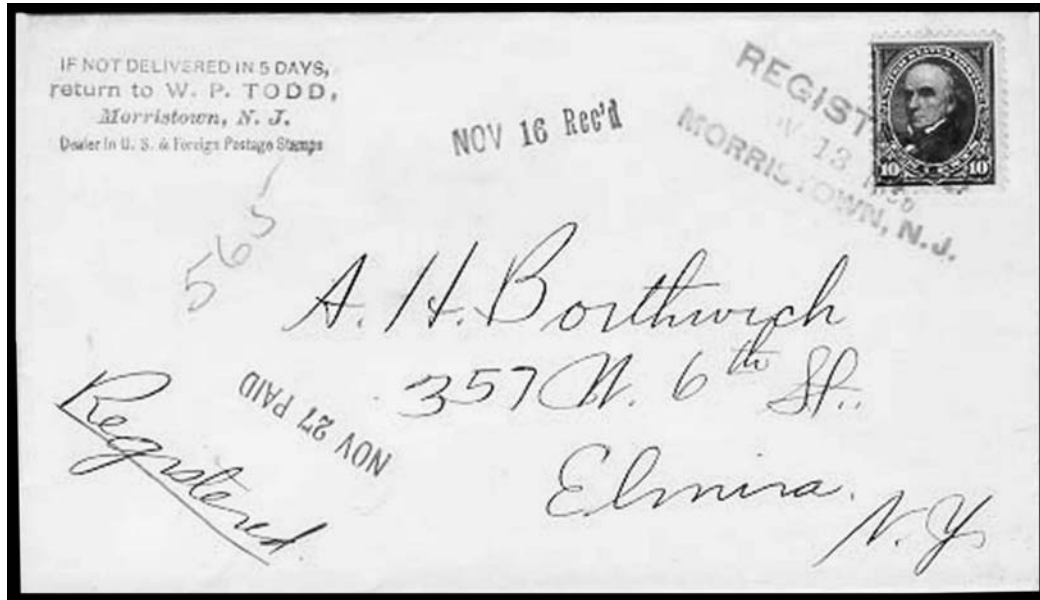 IF NOT DELIVERED IN 5 DAYS,
return to W. P. TODD,
Morristown, N. J.
Dealer in U. S. & Foreign Postage Stamps
NOV 16 Rec'd
REGIST
13
MORRISTOWN, N.J.
10 10
565
A. H. Borthwick
357 W. 6th St.
Elmira. N.Y.
NOV 27 PAID
Registered.